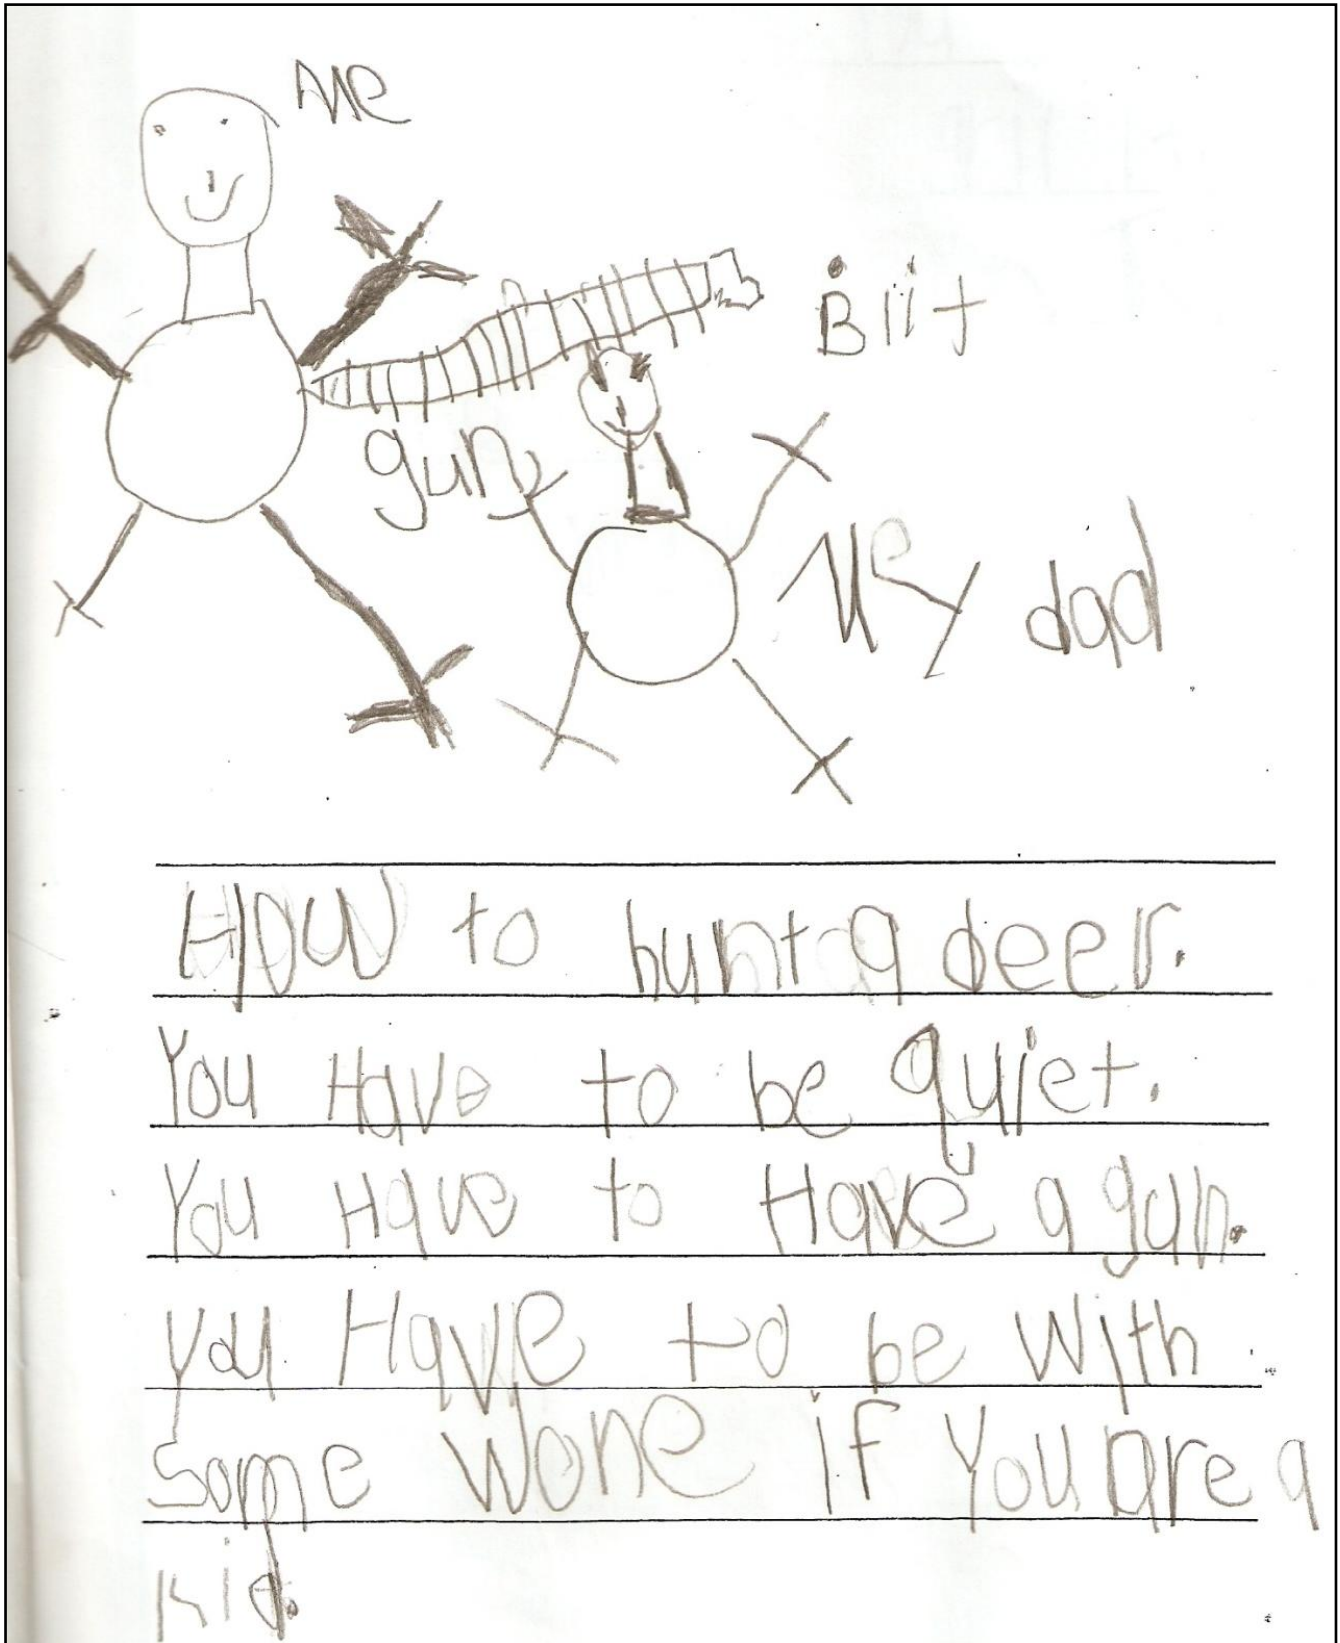 Me
Biit
gun
My dad
How to hunt a deer.
You Have to be quiet.
You Have to Have a gun.
you Have to be with
some wone if You are a
kid.